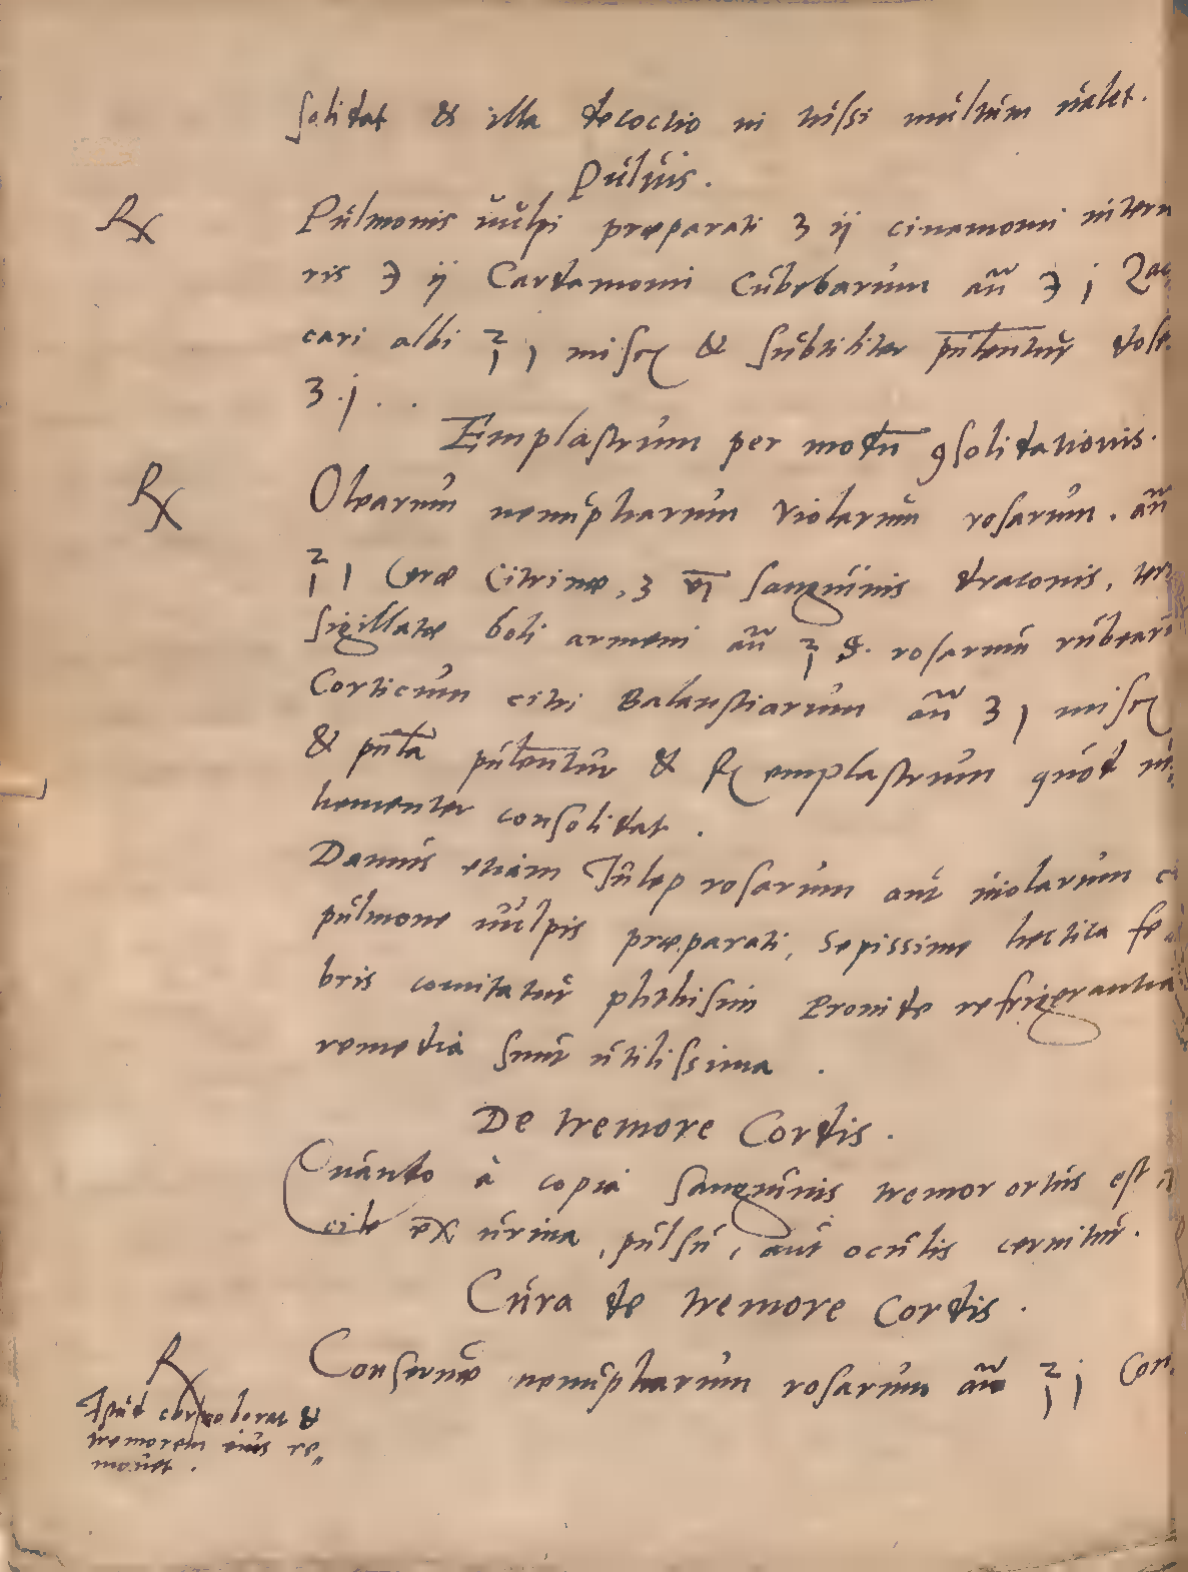 solidat & illa decoctio in tussi multum ualet.
Puluis.
℞ Pulmonis uulpi præparati ʒ ij cinamomi
ris ℈ ij Cardamomi Cubebarum añ ℈ j Zac
cari albi ℥ j misc & subtiliter pul̄entur dose.
ʒ .j . .
Emplastrum per modū ꝯsolidationis.
℞ Olearum nenupharum violarum rosarum. añ
℥ j Ceræ Citrinæ, ʒ vj sanguinis draconis, terr
sigillatæ boli armeni añ ℥ ß. rosarum rubearū
Corticum citri Balaustiarum añ ʒ j misc
& pul̄a pul̄entur & f emplastrum quod ue
hementer consolidat .
Damus etiam Julep rosarum aut uiolarum cū
pulmone uulpis præparati, sepissime hectica fe
bris comitatur phthisim Proinde refrigerantia
remedia sunt utilissima .
De tremore Cordis .
Quando à copia sanguinis tremor ortus est
cile ex urina, pulsu, aut oculis cernitur.
Cura de tremore Cordis .
℞ Conseruæ nenupharum rosarum añ ℥ j Con.
Istud corroborat &
tremorem eius re„
mouet .